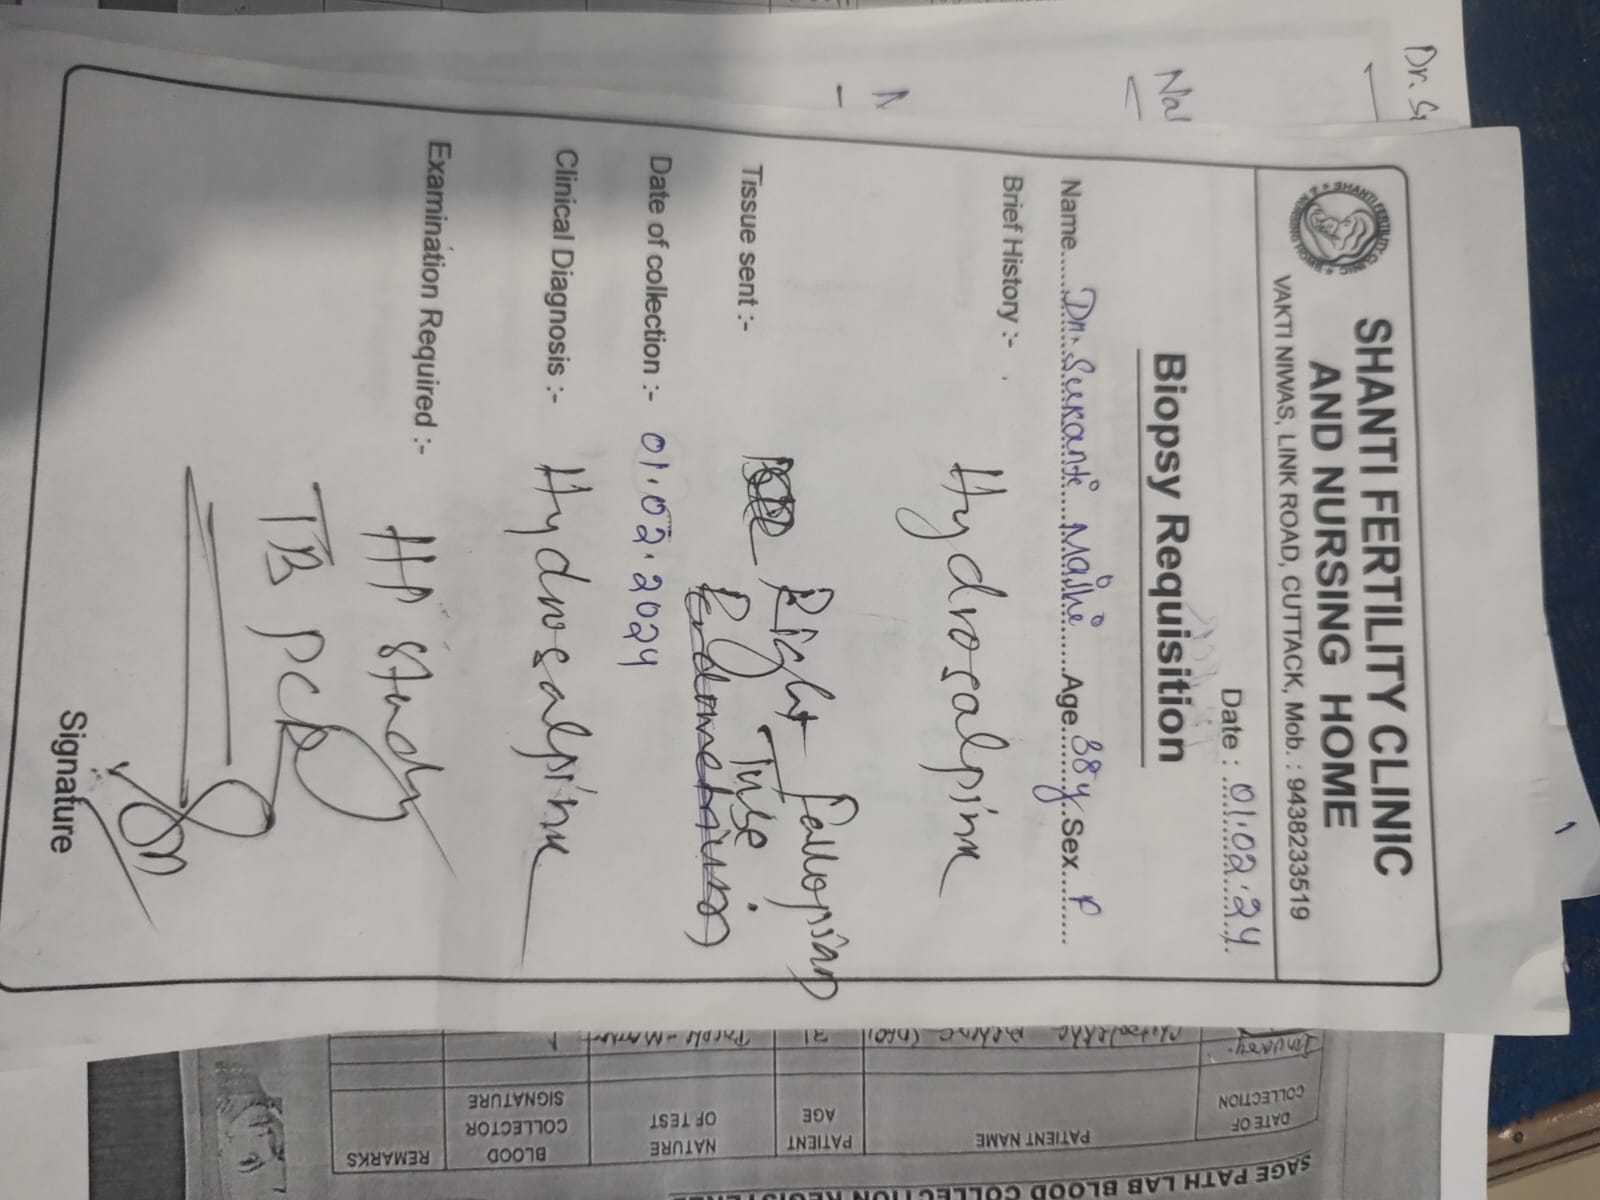 SHANTI FERTILITY CLINIC
AND NURSING HOME
VAKTI NIWAS, LINK ROAD, CUTTACK, Mob. : 9438233519
Date : 01.02.24
Biopsy Requisition
Name Dr. Sukanti Majhi Age 38y Sex F
Brief History :-
Hydrosalpinx
Tissue sent :- Right fallopian
Tube
Date of collection :- 01.02.2024
Clinical Diagnosis :- Hydrosalpinx
Examination Required :- HP study
TB PCR
Signature
Dr. S
Nal
SAGE PATH LAB BLOOD COLLECTION
DATE OF COLLECTION
PATIENT NAME
PATIENT AGE
NATURE OF TEST
BLOOD COLLECTOR SIGNATURE
REMARKS
31